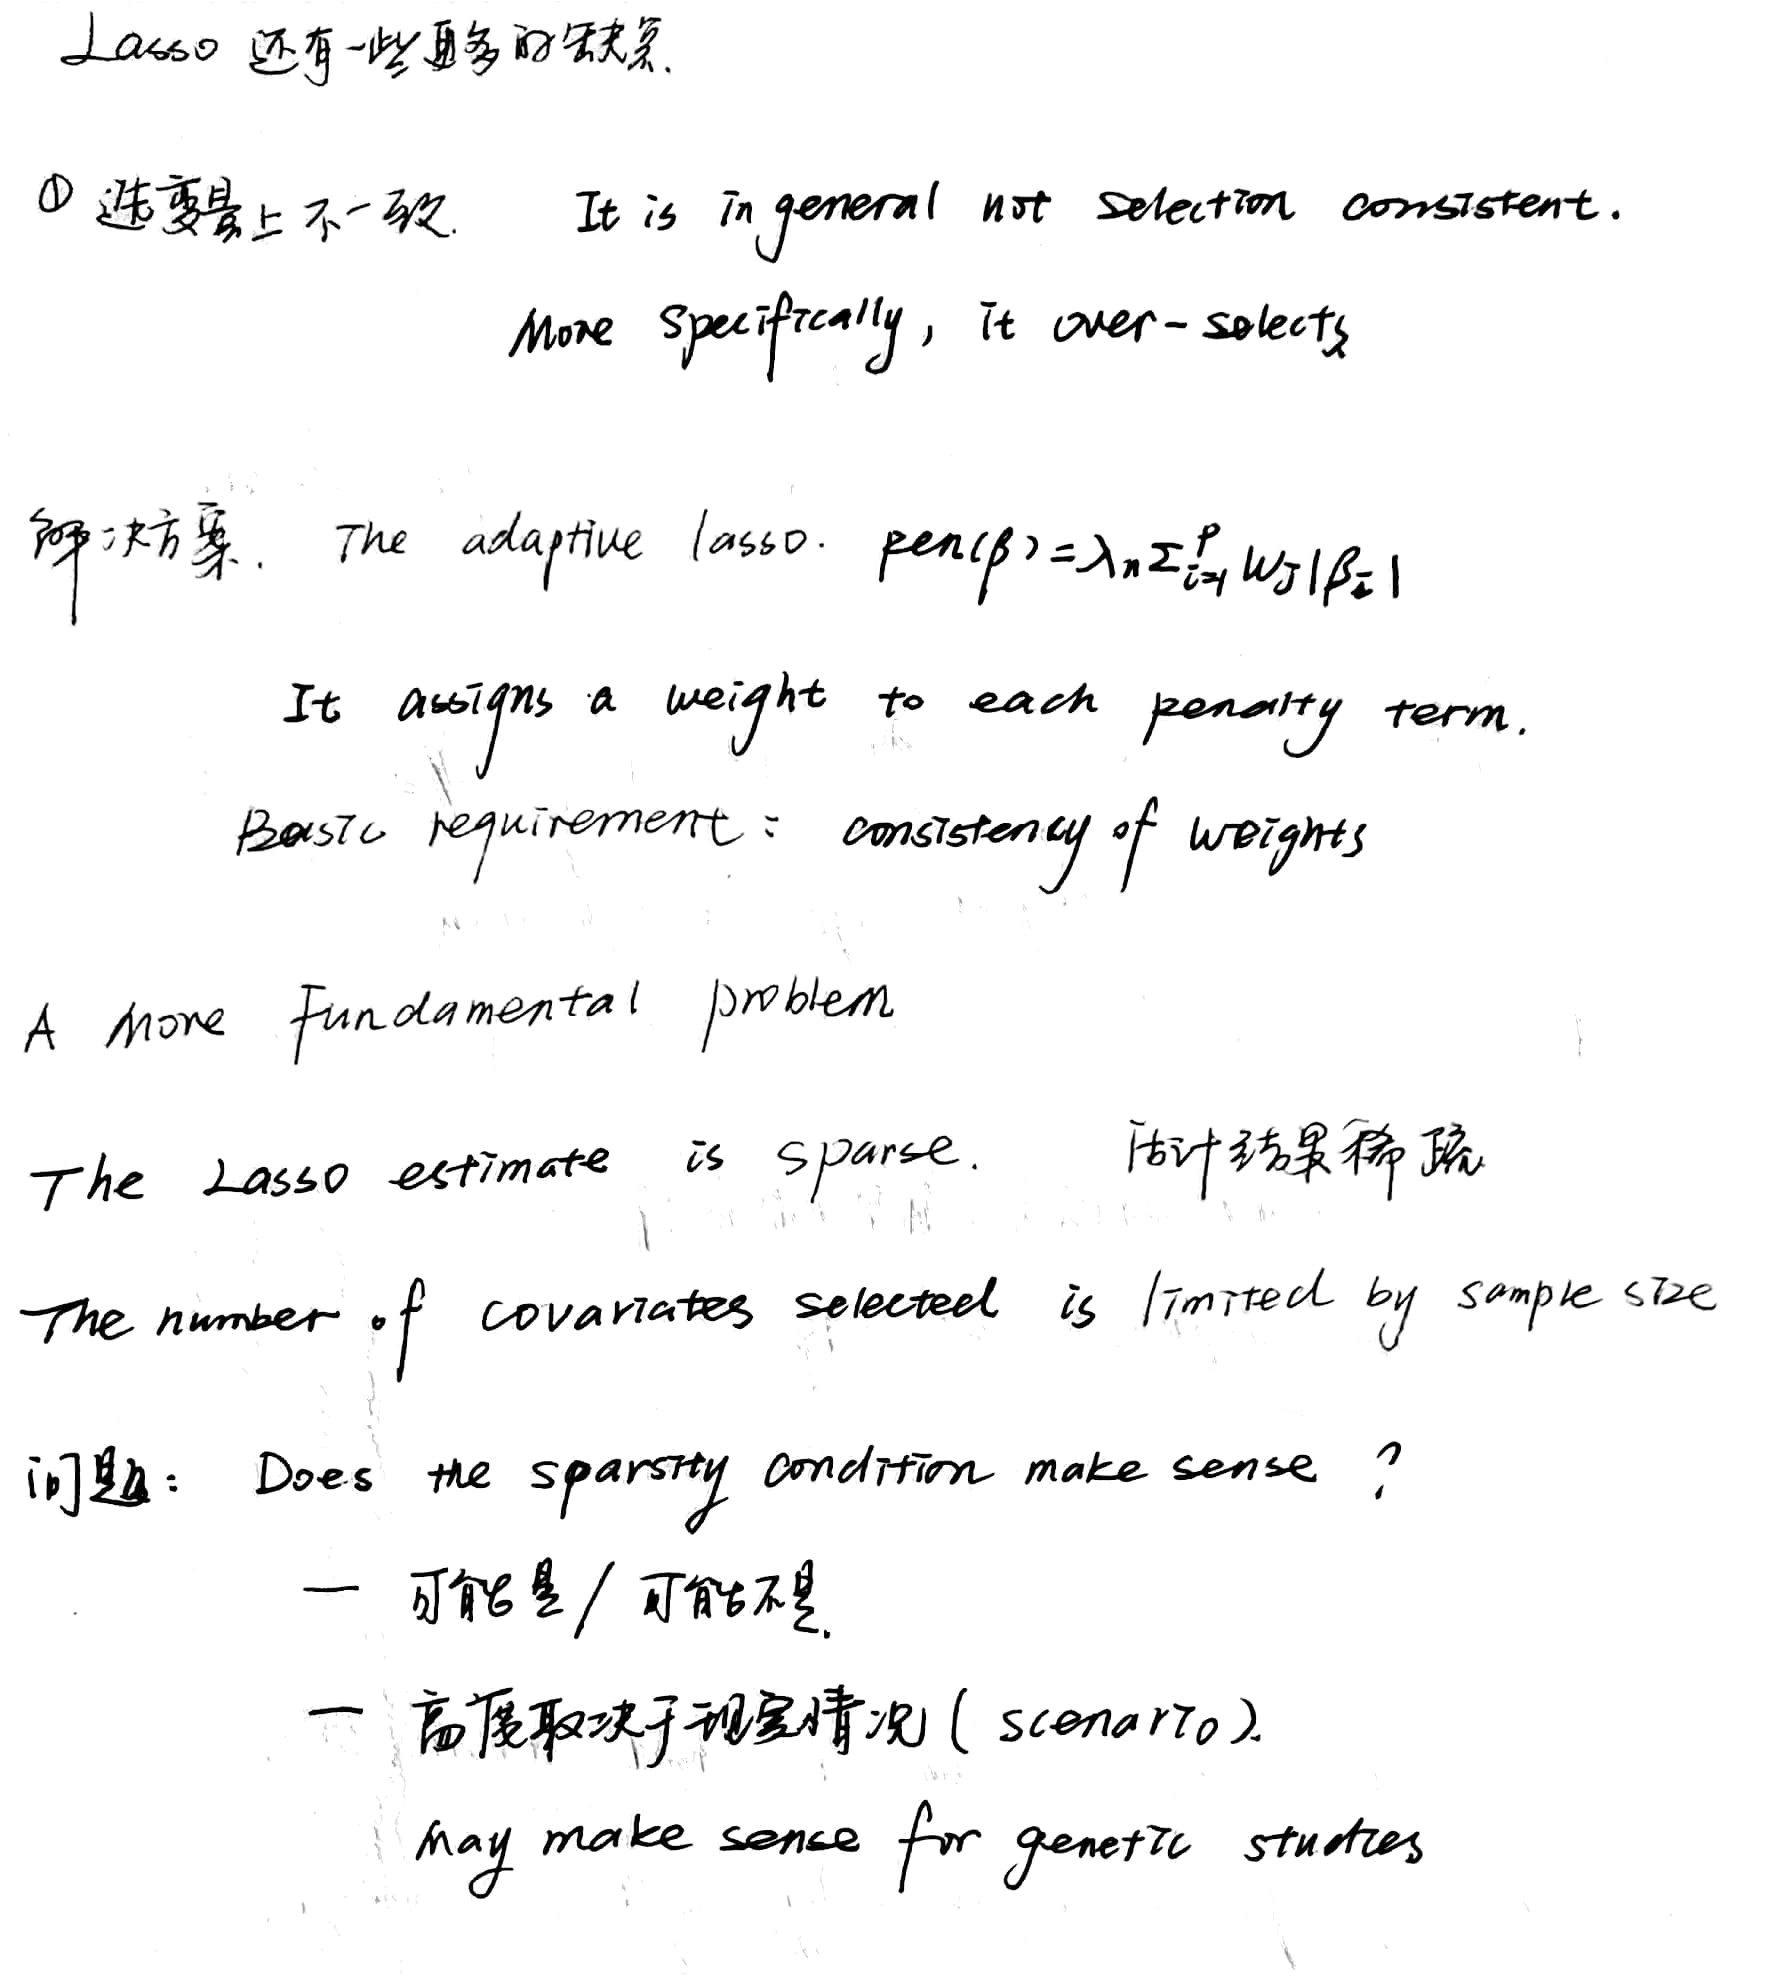 Lasso 还有一些更多的缺点.
① 选变量上不一致. It is in general not selection consistent.
More specifically, it over-selects
解决方案. The adaptive lasso. pen(β)=λₙΣᵢ₌₁ᵖ wⱼ|βᵢ|
It assigns a weight to each penalty term.
Basic requirement: consistency of weights
A more Fundamental problem
The Lasso estimate is sparse. 估计结果稀疏
The number of covariates selected is limited by sample size
问题: Does the sparsity condition make sense ?
— 可能是/可能不是.
— 高度取决于现实情况(scenario).
May make sense for genetic studies